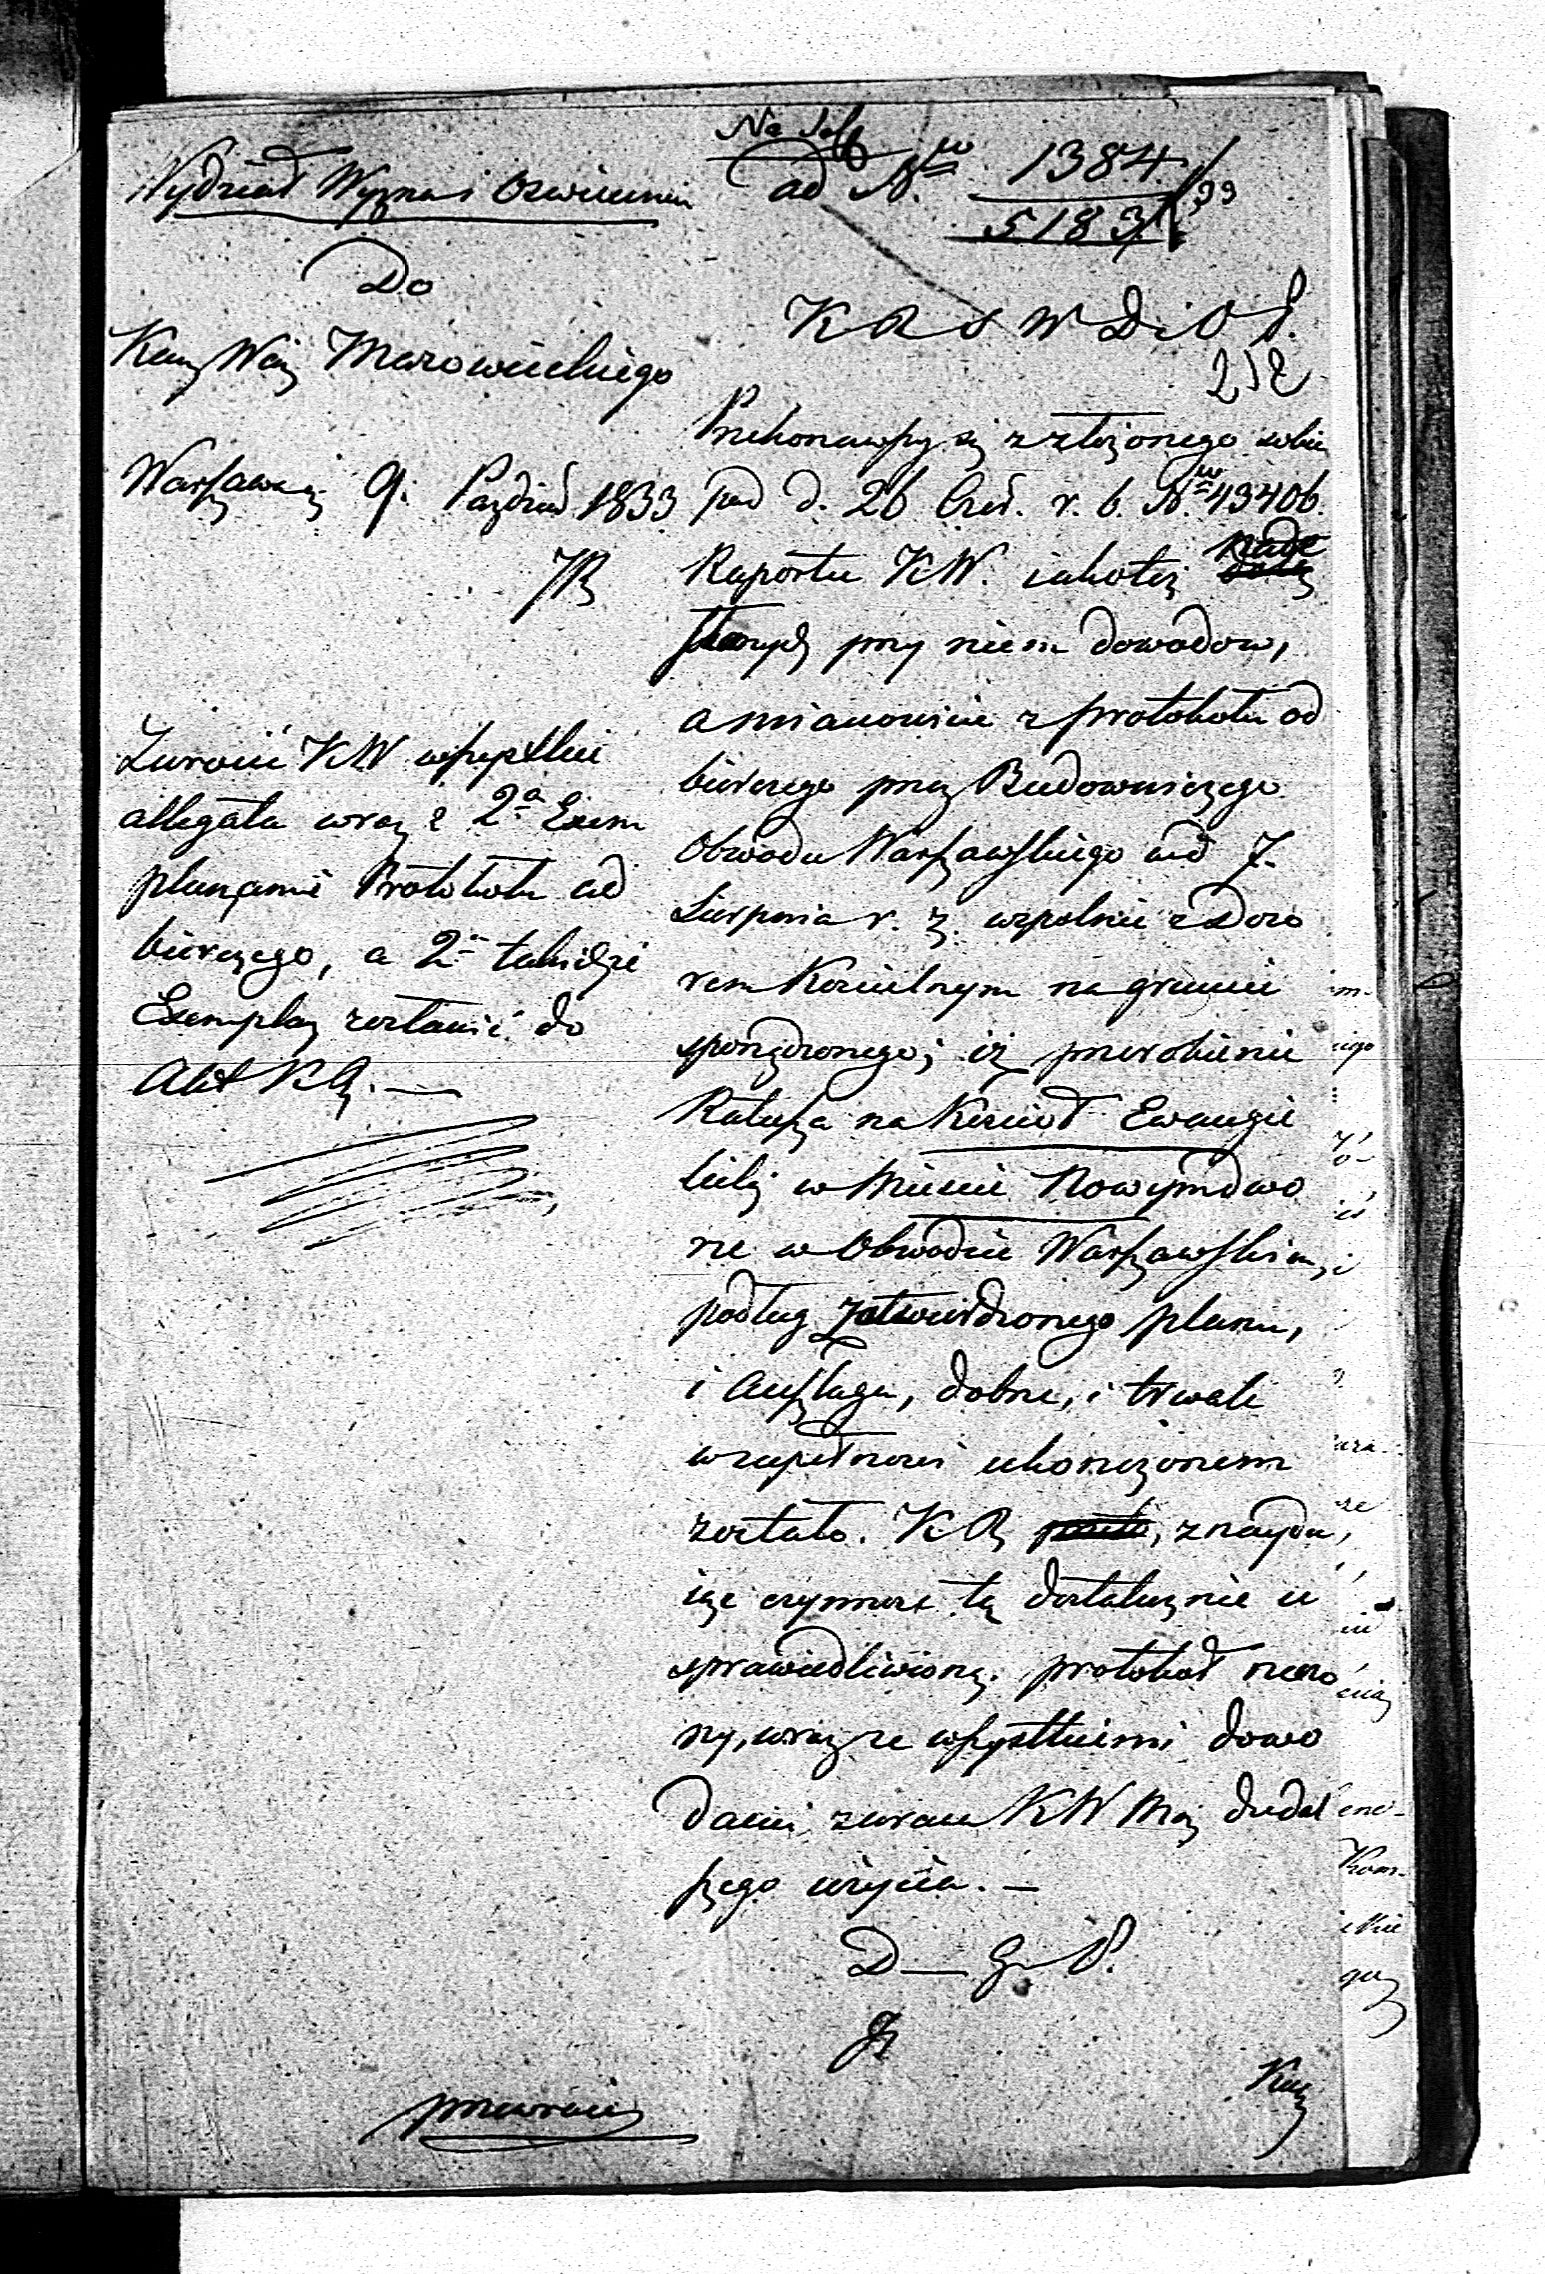 Na Sess
Wydział Wyznań i Oświecenia
ad Nrw 1384/5183 /33
Do
Kom Woj Mazowieckiego
Warszawa d. 9. Paździer 1833
K R S W D i O P.
252
Przekonawszy się z złożonego sobie
pod d. 26 Czer. r. b. Nrw 43406.
Raportu KW. iakoteż nade
słanych przy niem dowodow,
a mianowicie z protokołu od
biorczego przez Budowniczego
Obwodu Warszawskiego w d 7.
Sierpnia r. z. wspolnie z Dozo
rem Kościelnym na gruncie
sporządzonego; iż przerobienie
Ratusza na Kościoł Ewangie
licki w Mieście Nowymdwo
rze w Obwodzie Warszawskim,
podług zatwierdzonego planu,
i Anszlagu, dobrze, i trwale
w zupełności ukończonem
zostało. K R znaydu
iąc czynność tę dostatecznie u
sprawiedliwioną. protokoł rzeczo
ny, wraz ze wszystkiemi dowo
dami, zwraca KW Maz do dal
szego użycia. —
D — G — P.
Zwrocić KW wszystkie
allegata wraz z 2a Exem
plarzami Protokołu od
biorczego, a 2i takiż
Exemplarz zostawić do
Akt KR. —
przewrócić